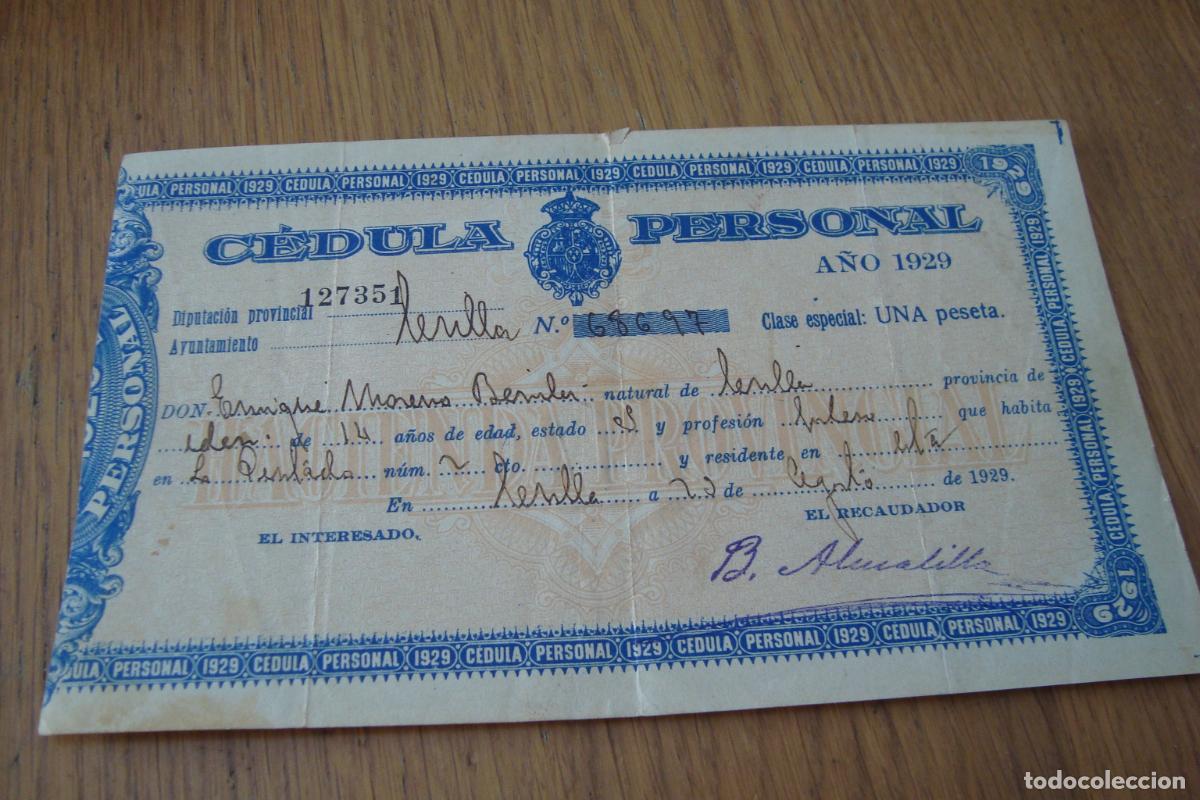 CÉDULA PERSONAL 1929 CÉDULA PERSONAL 1929 CÉDULA PERSONAL 1929 CÉDULA PERSONAL 1929 CÉDULA PERSONAL 1929
CÉDULA PERSONAL
AÑO 1929
127351
Diputación provincial
Ayuntamiento Sevilla N.º 68697 Clase especial: UNA peseta.
DON Enrique Moreno natural de Sevilla provincia de
idem de 14 años de edad, estado S y profesión que habita
en núm. 2 cto. y residente en esta
En Sevilla a 23 de Agosto de 1929.
EL INTERESADO,
EL RECAUDADOR
B.
HACIENDA PROVINCIAL
PERSONAL
CÉDULA PERSONAL 1929 CÉDULA PERSONAL 1929
1929
CÉDULA PERSONAL 1929 CÉDULA PERSONAL 1929 CÉDULA PERSONAL 1929 CÉDULA PERSONAL 1929
todocoleccion